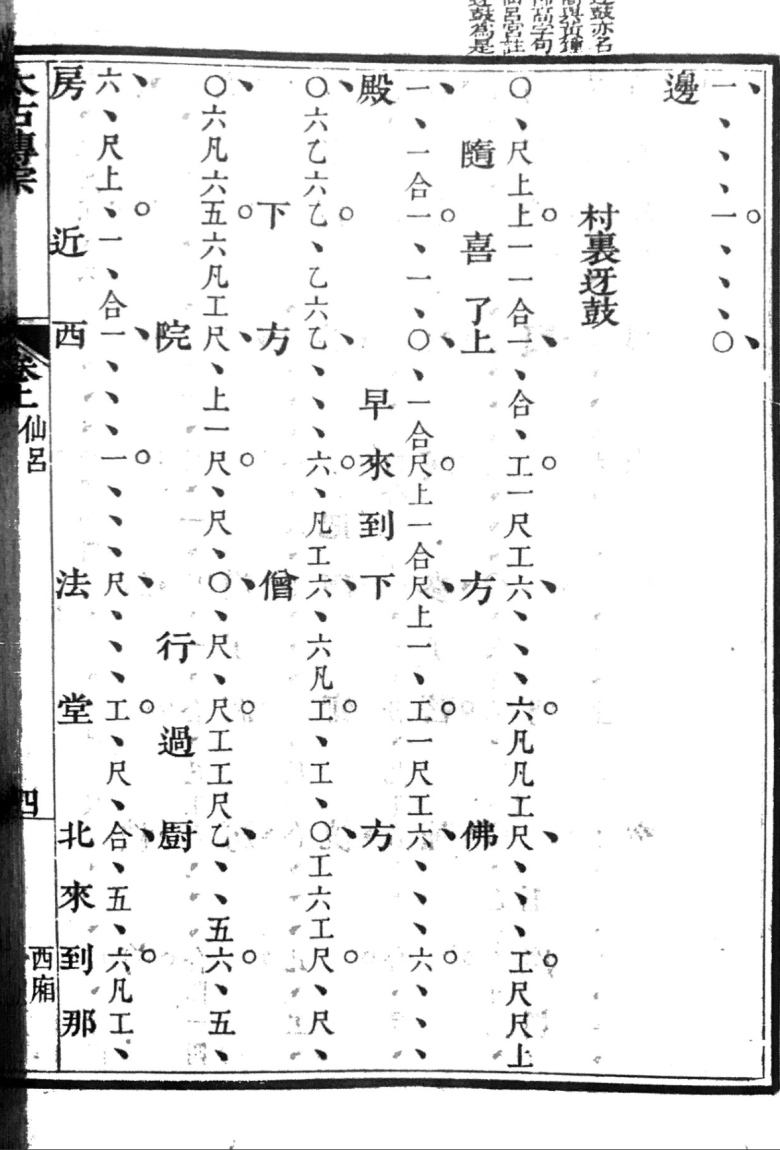 亦名
字句
呂宮註
鼓為是
一、、、一、、、○
邊
村裏迓鼓
○、尺上上一一合一、合、工一尺工六、、、六凡凡工尺、、、工尺尺上
隨喜了上方佛
一、一合一、一、○、一合尺上一合尺上一、工一尺工六、、、六、、、
殿早來到下方
○六乙六乙、乙六乙、、、六、凡工六、六凡工、工、○工六工尺、尺、
下方僧
○六凡六五六凡工尺、上一尺、尺、○、尺、尺工工尺乙、、五六、五、
院行過廚
六、尺上、一、合一、、、一、、、尺、、、工、尺、合、五、六凡工、
房近西法堂北來到那
太古傳宗
卷上
仙呂
四
西廂